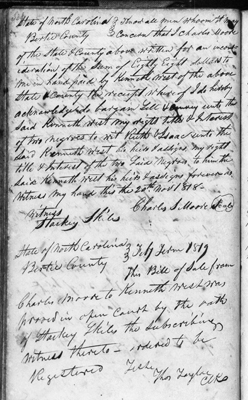 State of North Carolina } To whom all men whom it may
Bertie County } Concern that I Charles Moore
of the State & County above written for an in consi
deration of the Sum of Eighty Eight dollars to
me in hand paid by Kenneth West of the above
State & County the receipt whereof I do hereby
acknowledge do bargain Sell & convey unto the
Said Kenneth West my right title & Interest
of two Negroes to wit Ruth & Isaac unto the
Said Kenneth West his heirs & assigns my right
title & Interest of the two Said Negroes to him the
Said Kenneth West his heirs & assigns forever
Witness my hand this the 20th Novr 1818
Witness Charles S Moore Seal
Starkey Skiles
State of North Carolina } Feby Term 1819
Bertie County } This Bill of Sale from
Charles Moore to Kenneth West was
proved in open Court by the oath
of Starkey Skiles the Subscribing
Witness thereto – ordered to be
Registered Teste
Tho Taylor